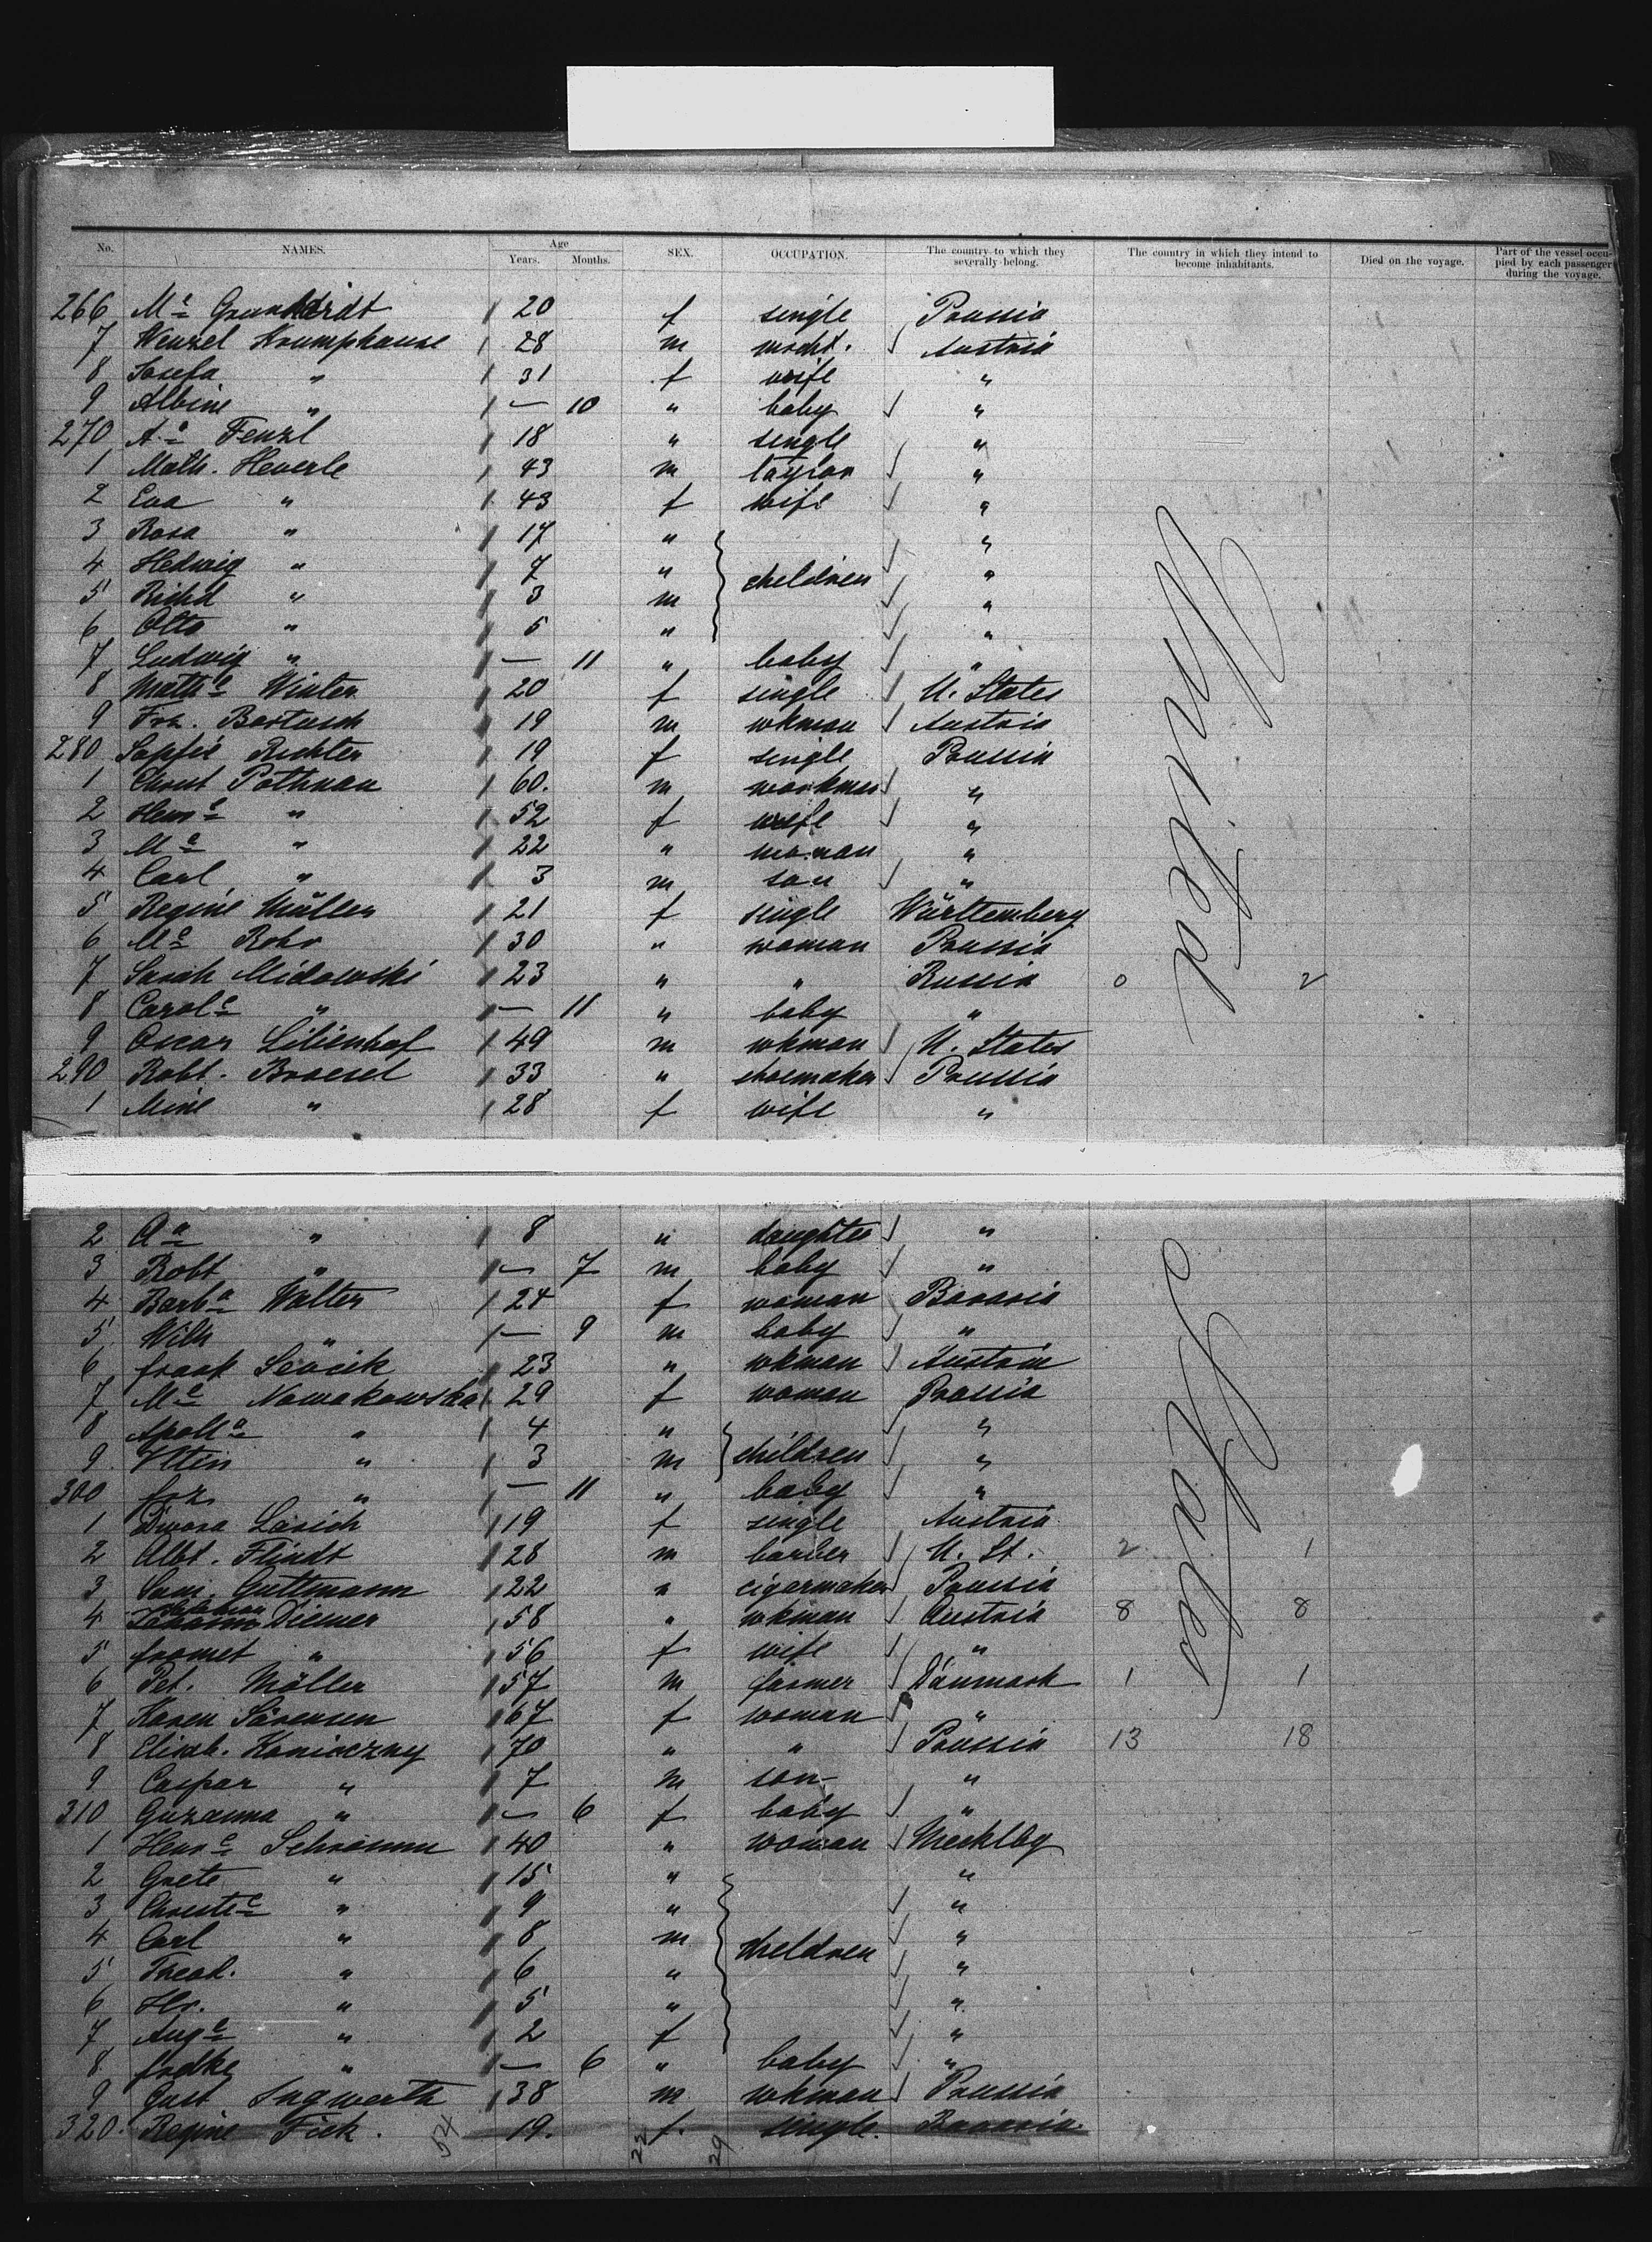 No. NAMES. Age Years. Months. SEX. OCCUPATION. The country to which they severally belong. The country in which they intend to become inhabitants. Died on the voyage. Part of the vessel occupied by each passenger during the voyage.
266 Ma 20 f single Prussia
7 Wenzel Krumphause 28 m mcht. Austria
8 Josefa " 31 f wife "
9 Albine " — 10 " baby "
270 Aa Fenzl 18 " single "
1 Math. Heverle 43 m taylor "
2 Eva " 43 f wife "
3 Rosa " 17 " "
4 Hedwig " 7 " children "
5 Richd " 3 m "
6 Otto " 5 " "
7 Ludwig " — 11 " baby "
8 Mathe Winter 20 f single U. States
9 Frz. Bartusch 19 m wkman Austria
280 Sopfie Richter 19 f single Prussia
1 Christ Pothman 60. m workman "
2 Henre " 52 f wife "
3 Ma " 22 " woman "
4 Carl " 3 m son "
5 Regine Müller 21 f single Württemberg
6 Ma Rohr 30 " woman Prussia
7 Sarah Midowski 23 " " Russia 0 2
8 Carole " — 11 " baby "
9 Oscar Lilienhof 49 m wkman U. States
290 Robt. Broesel 33 " shoemaker Prussia
1 Mine " 28 f wife "
2 Aa " 8 " daughter "
3 Robt " — 7 m baby "
4 Barba Walter 24 f woman Bavaria
5 Wilh " — 9 m baby "
6 frank 23 " wkman Austria
7 Ma Nowakowska 29 f woman Prussia
8 Apolla " 4 " "
9 " 3 m children "
300 frz " — 11 " baby "
1 19 f single Austria
2 Albt. Flindt 28 m barber U. St. 2 1
3 Sam. Guttmann 22 " cigarmaker Prussia
4 Diemer 58 " wkman Austria 8 8
5 fromet " 56 f wife "
6 Pet. Möller 57 m farmer Dänmark 1 1
7 Karen Sörensen 67 f woman "
8 Elisab. Konieczny 70 " " Prussia 13 18
9 Caspar " 7 m son "
310 Guzanna " — 6 f baby "
1 Henre Schramm 40 " woman Mecklbg
2 Grete " 15 " "
3 Christe " 9 " "
4 Carl " 8 m children "
5 Theod. " 6 " "
6 Hr. " 5 " "
7 Auge " 2 f "
8 fredke " — 6 " baby "
9 Gust Ingwerth 38 m wkman Prussia
320. Regine Fick. 19. f. single. Bavaria.
54 22 29
United
States